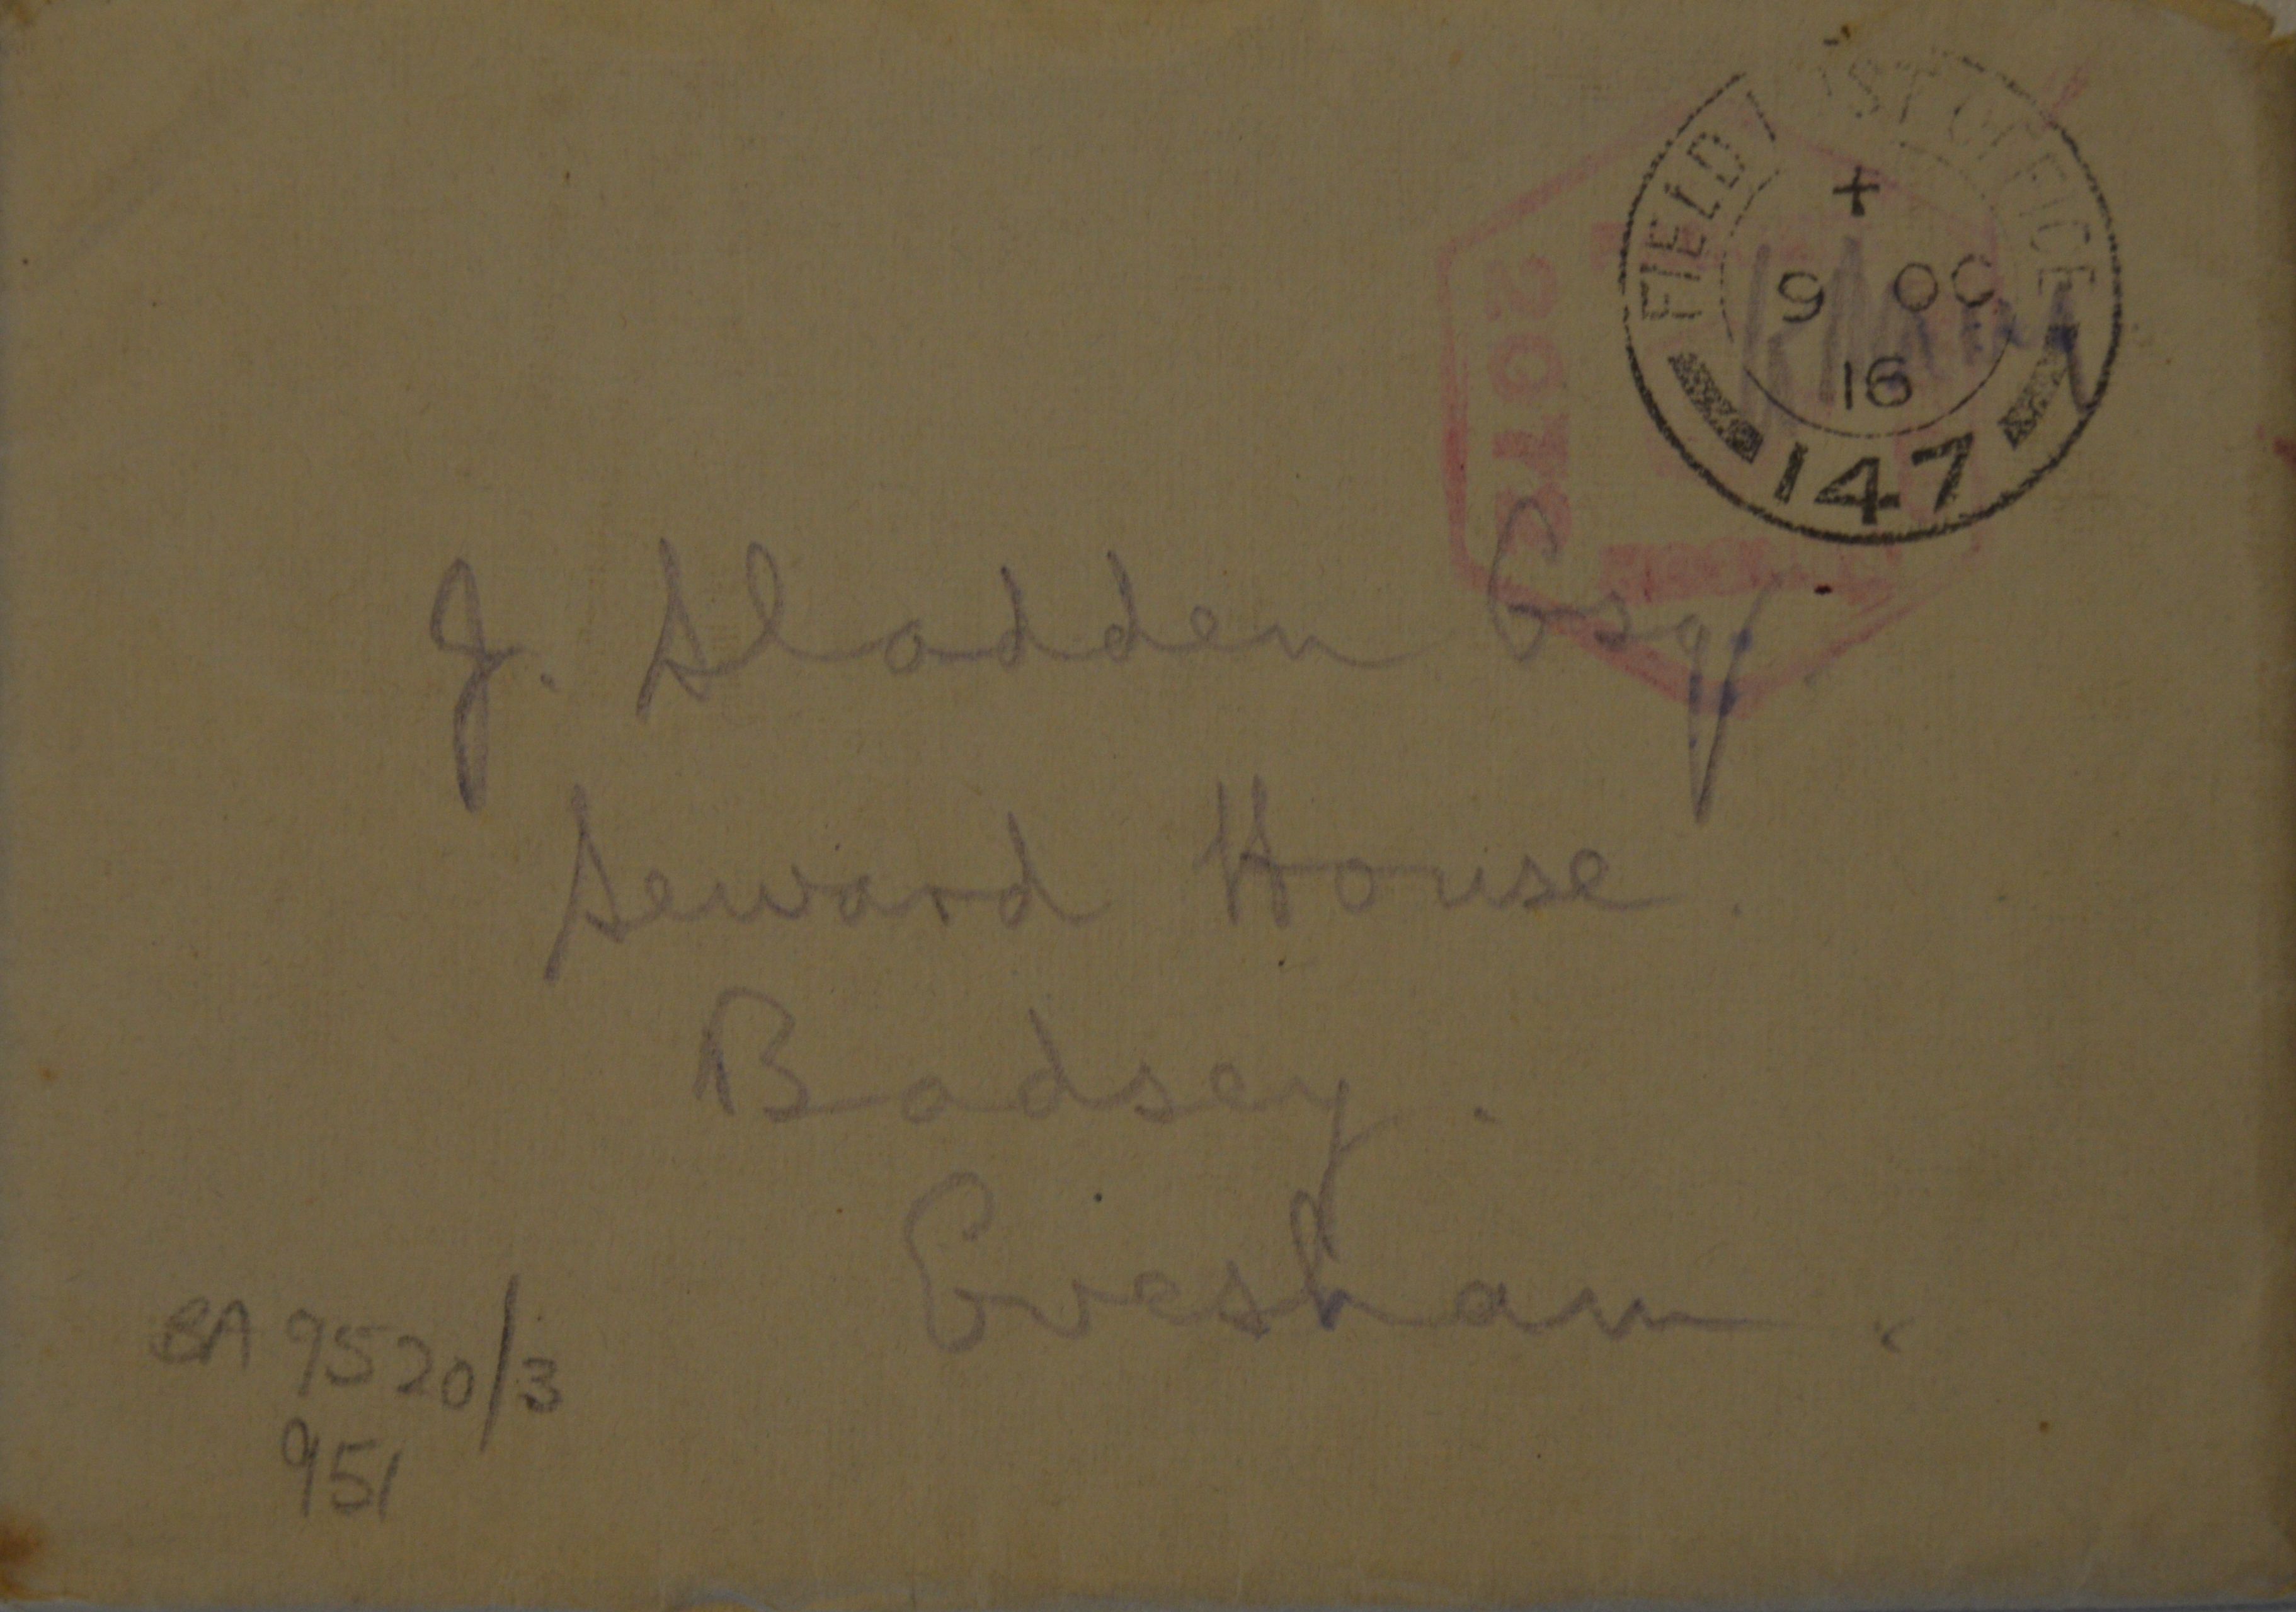 FIELD POST OFFICE
+
9 OC
16
147
J. Sladden Esq
Seward House.
Badsey.
Evesham.
BA 9520/3
951